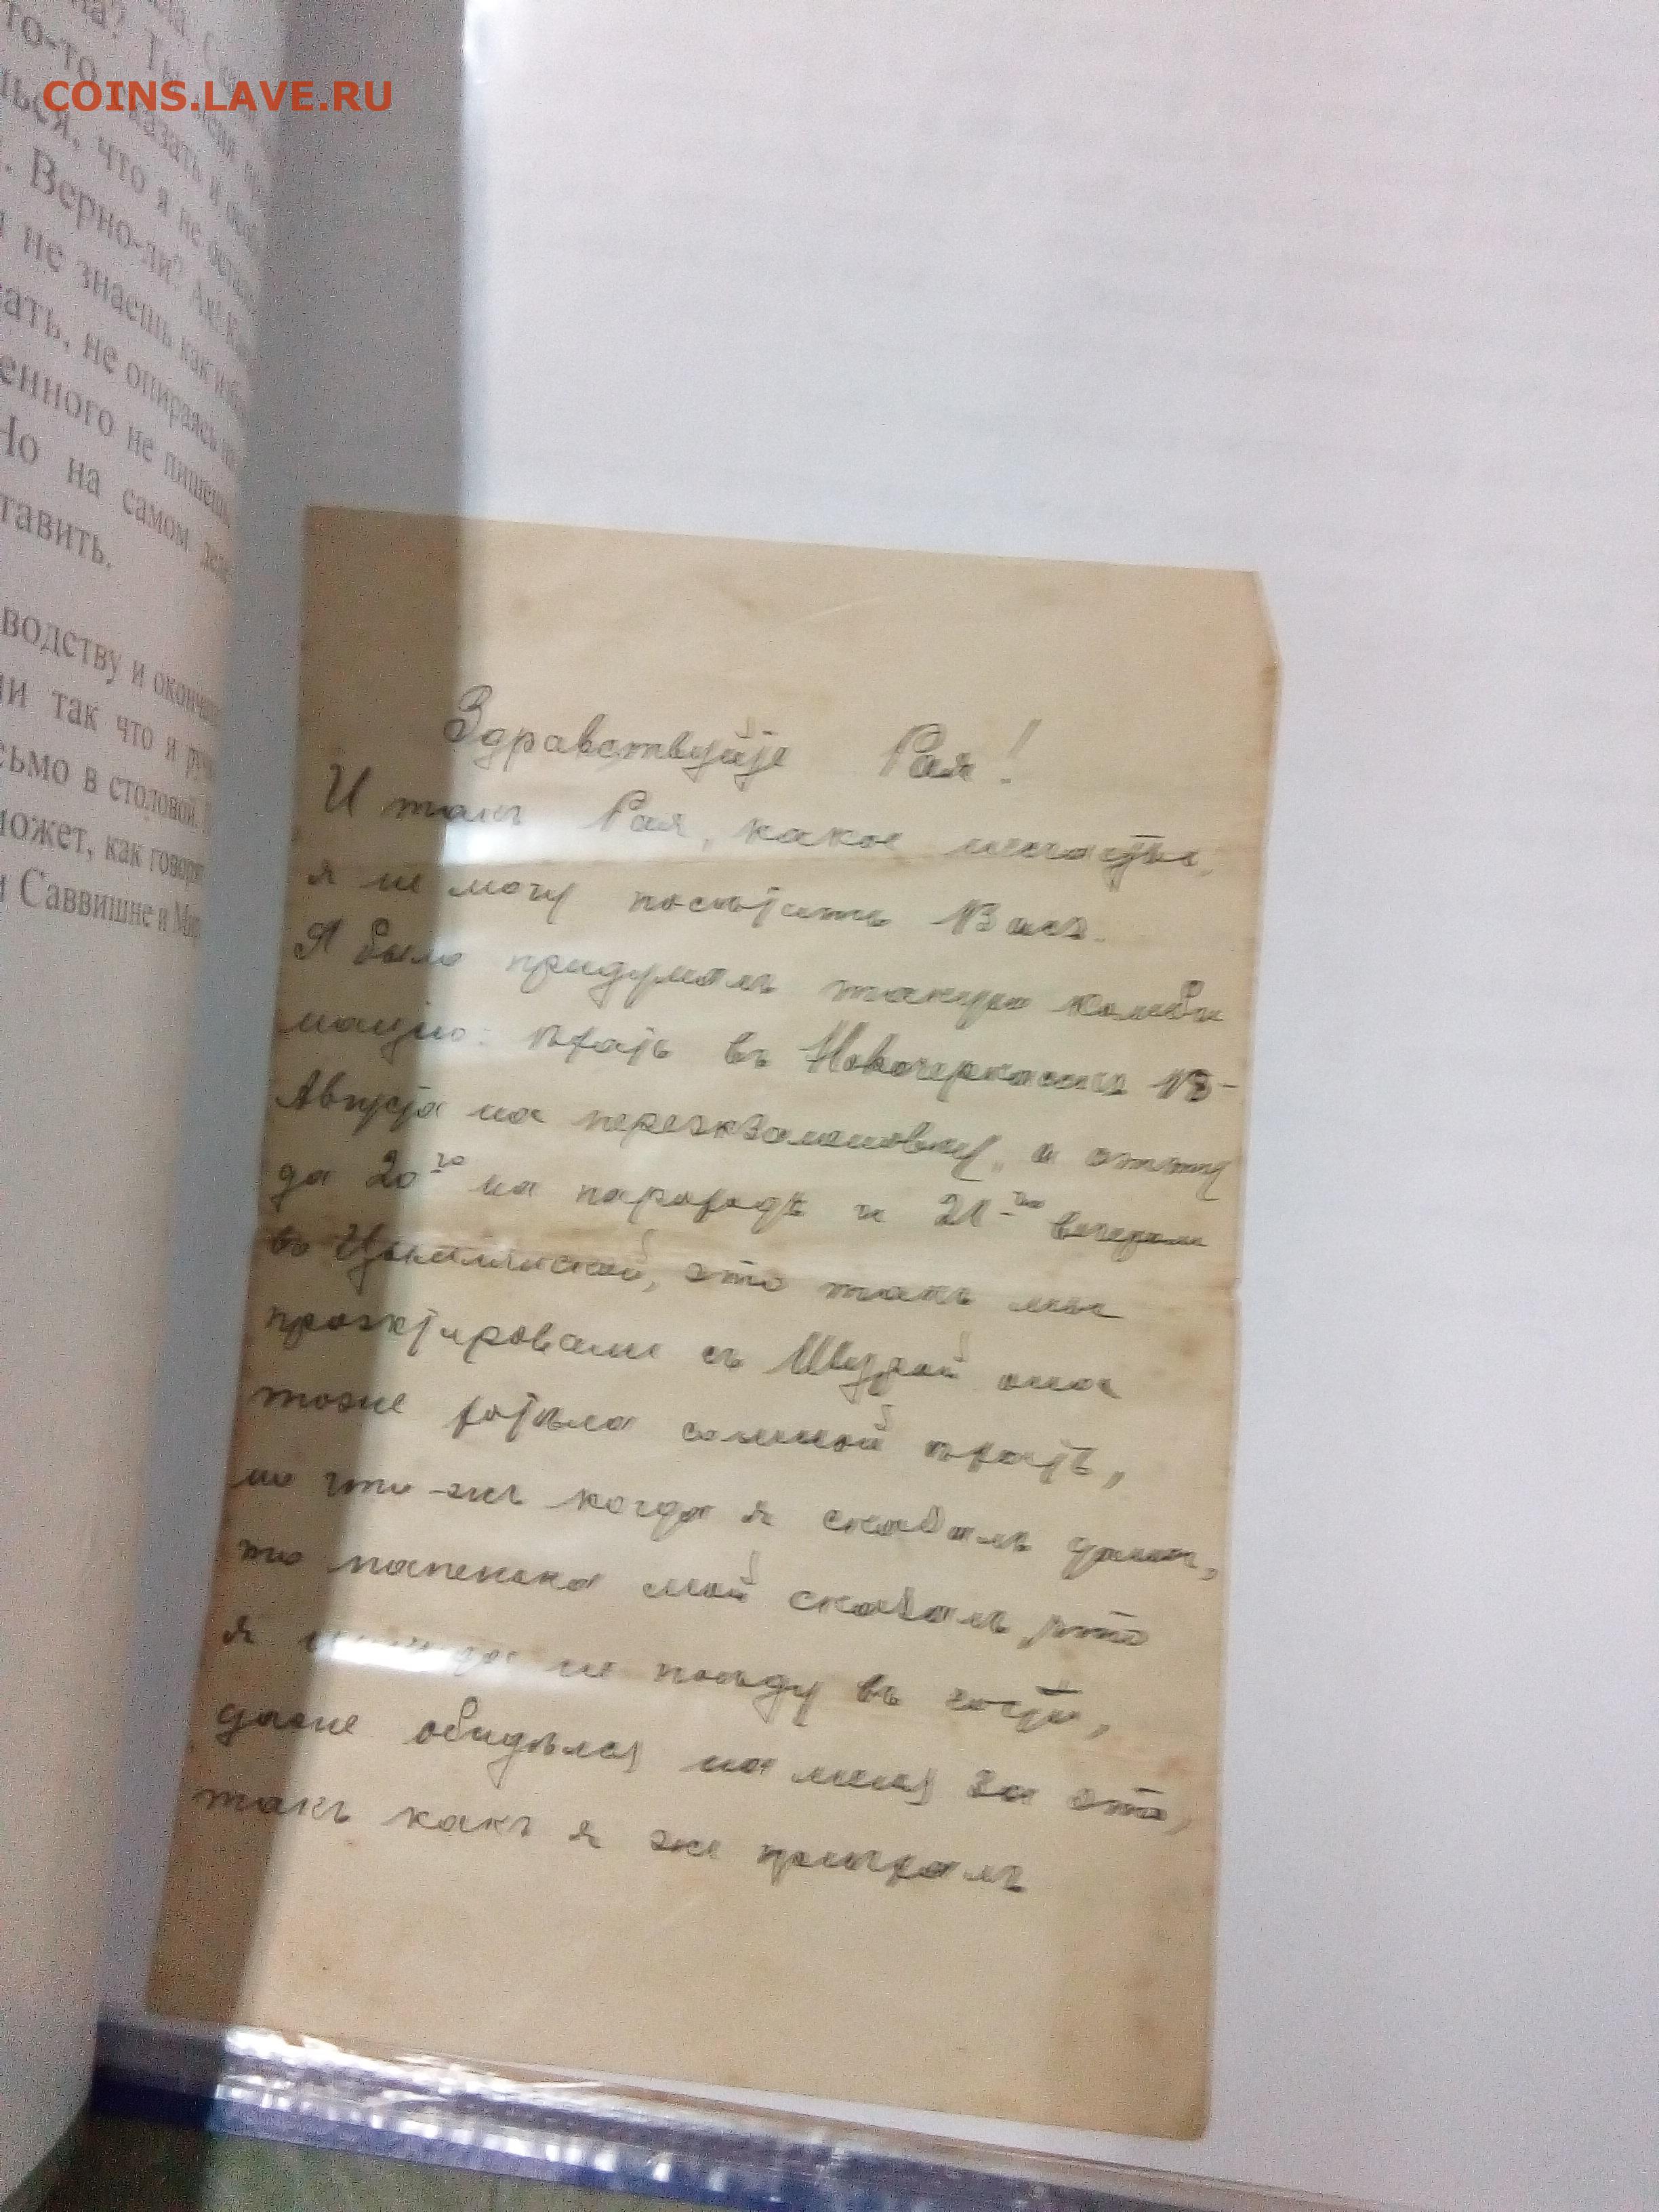 COINS.LAVE.RU
то-то
что я не
Верно-ли? Ах!
не знаешь как
не опираясь
енного не пишешь
Но на самом деле
тавить.
водству и
ии так что я
сьмо в столовой.
может, как
и Саввишне и
Здравствуйте Рая!
И такъ Рая, какое несчастье,
я не могу посѣтить Васъ.
Я было придумалъ такую комби
нацiю: ѣхать въ Новочеркасскъ
Августа на переэкзаменовку, а отту
да 20го на пароходѣ и 21го вечеромъ
въ Цымлянской, это такъ мы
проэктировали съ Шурой она
тоже хотѣла самной ѣхать,
но что-жъ когда я сказалъ дома,
то папенька мой сказалъ, что
я никогда не поѣду въ гости,
даже обидѣлся на меня за это,
такъ какъ я же приѣхалъ